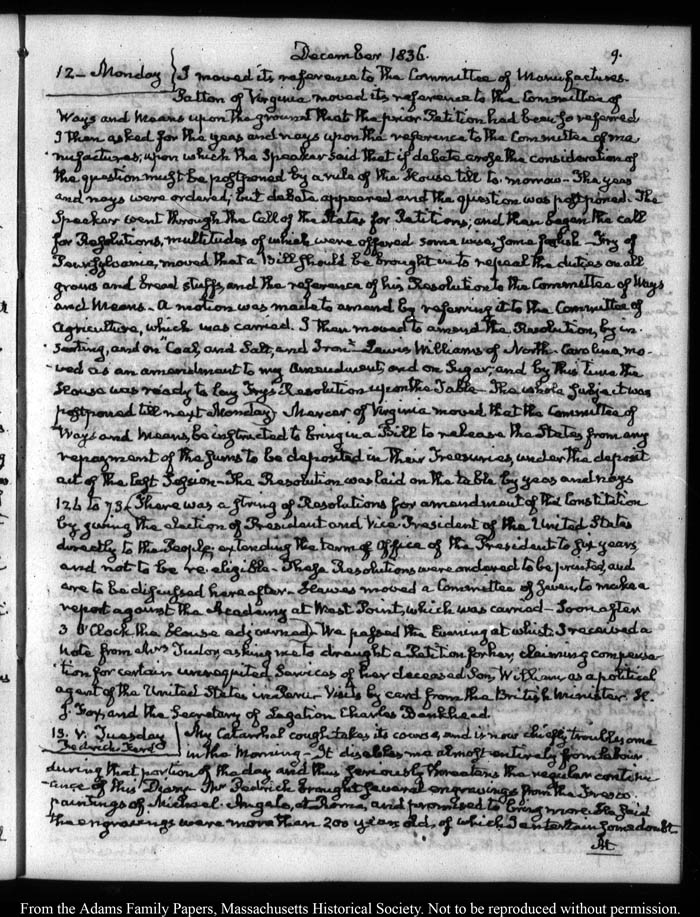 December 1836.
9.
12- Monday I moved its reference to the Committee of Manufactures-
Patton of Virginia moved its reference to the Committee of
Ways and Means upon the ground that the prior Petition had been so referred
I then asked for the yeas and nays upon the reference to the Committee of ma-
nufactures; upon which the Speaker said that if debate arose the consideration of
the question must be postponed by a rule of the House till to-morrow- The yeas
and nays were ordered; but debate appeared and the question was postponed. The
Speaker went through the Call of the States for Petitions; and then began the call
for Resolutions, multitudes of which were offered some wise, some foolish- Fry of
Pennsylvania, moved that a Bill should be brought in to repeal the duties on all
grain and bread stuffs, and the reference of his Resolution to the Committee of Ways
and Means- A motion was made to amend by referring it to the Committee of
Agriculture, which was carried. I then moved to amend the Resolution, by in-
serting, and on "Coal, and Salt, and Iron" Lewis Williams of North-Carolina mo-
-ved as an amendment to my amendment, and on Sugar; and by this time the
House was ready to lay Fry's Resolution upon the Table- The whole subject was
postponed till next Monday, Mercer of Virginia moved that the Committee of
Ways and Means, be instructed to bring in a Bill to release the States from any
repayment of the sums to be deposited in their Treasuries, under the deposit
act of the last Session- The Resolution was laid on the table by yeas and nays
126 to 73. There was a string of Resolutions for amendment of the Constitution
by giving the election of President and Vice-President of the United States
directly to the People, extending the term of Office of the President to six years,
and not to be re-eligible- These Resolutions were ordered to be printed, and
are to be discussed hereafter- Hawes moved a Committee of Seven, to make a
report against the Academy at West Point, which was carried- Soon after
3 O'Clock the House adjourned. We passed the Evening at whist. I received a
Note from Mrs Tudor, asking me to draught a Petition for her, claiming compensa-
-tion for certain unrequited services of her deceased Son, William, as a political
agent of the United States in Peru- Visits by card from the British Minister H.
S. Fox, and the Secretary of Legation Charles Bankhead.
13. V. Tuesday My Catarrhal cough takes its course, and is now chiefly troublesome
Pedrick
in the Morning- It disables me almost entirely from labour
during that portion of the day, and thus seriously threatens the regular continu-
-ance of this Diary- Mr Pedrick brought several engravings from the Fresco
paintings of Michael Angelo, at Rome, and promised to bring more. He said
the engravings were more than 200 years old, of which I entertain some doubt
At
From the Adams Family Papers, Massachusetts Historical Society. Not to be reproduced without permission.